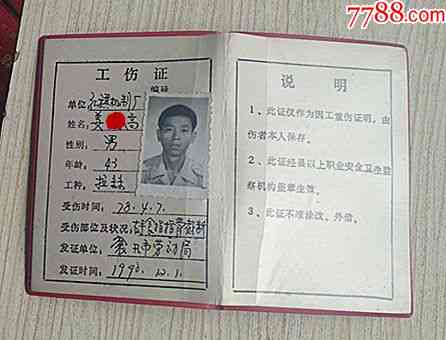 7788.com
工伤证
编号
单位
姓名:姜 高
性别:男
年龄:43
工种:
受伤时间:73.4.7.
受伤部位及状况:
发证单位: 市劳动局
发证时间:1990.12.1.
说明
1、此证仅作为因工负伤证明,由
伤者本人保存。
2、此证经县以上职业安全卫生监
察机构盖章生效。
3、此证不准涂改、外借。